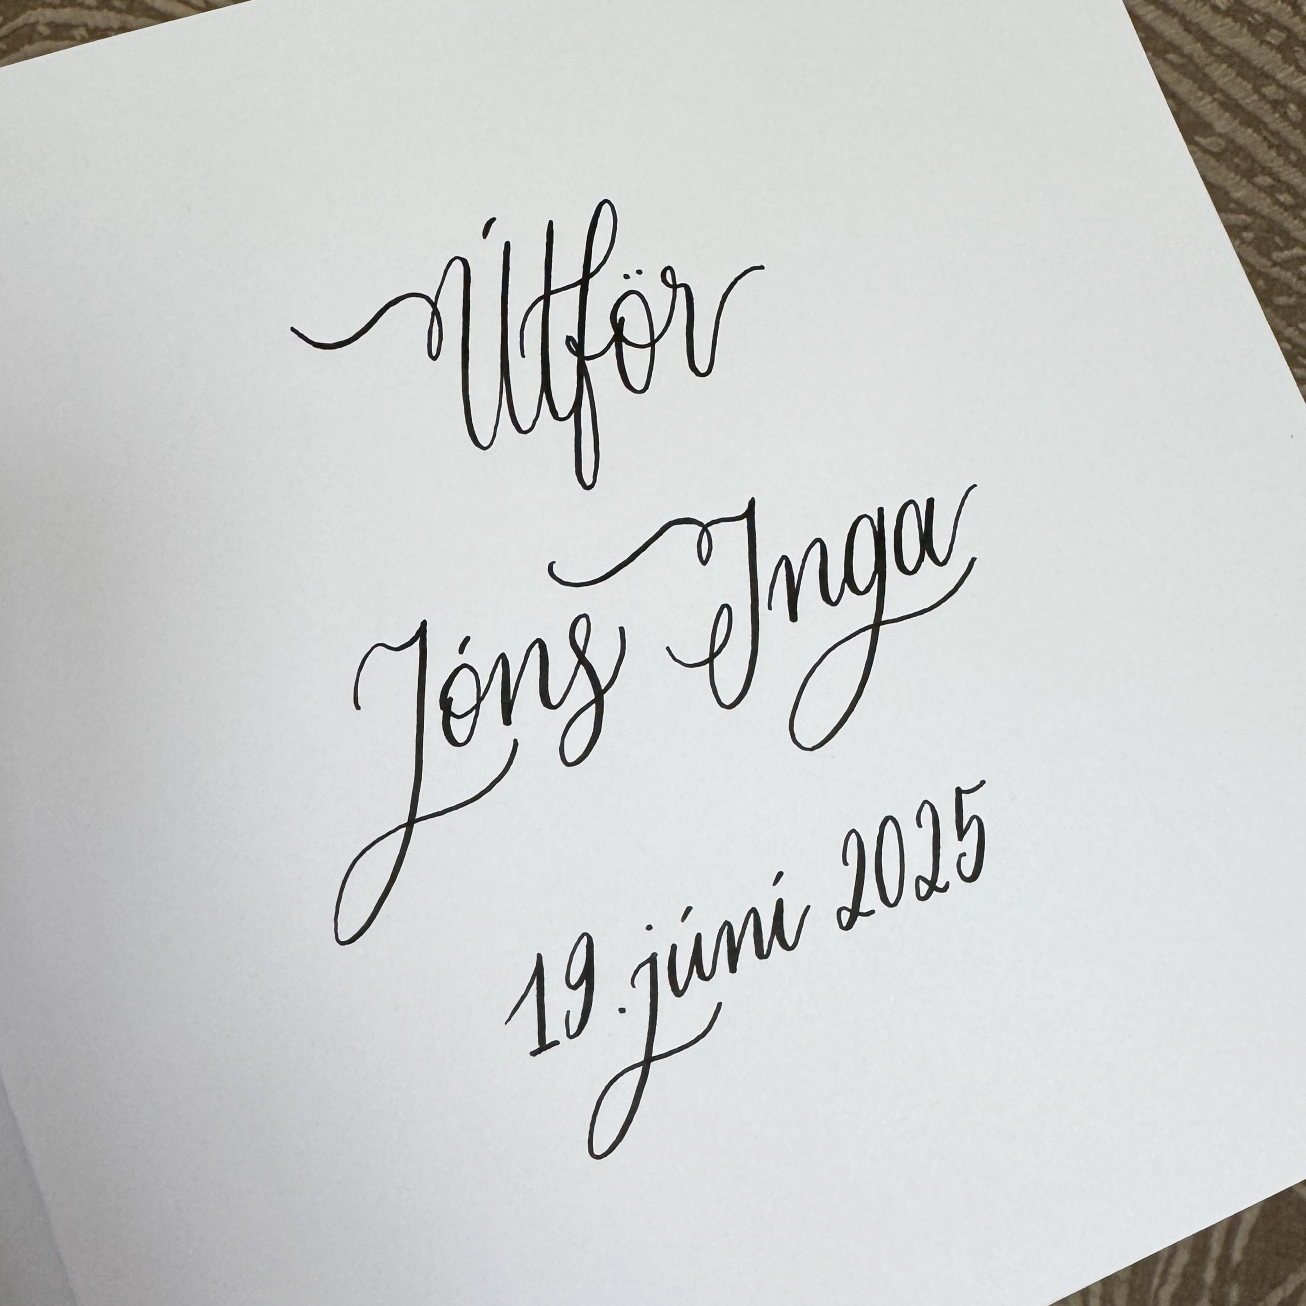 Útför
Jóns Inga
19. júní 2025